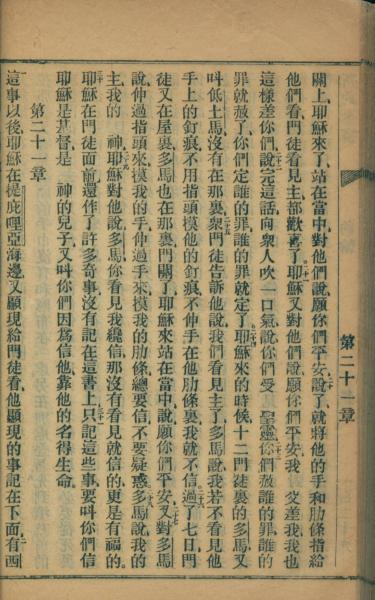 關上、耶穌來了、站在當中、對他們說、願你們平安、說了、就將他的手和肋條指給
他們看、門徒看見主都歡喜了、耶穌又對他們說、願你們平安、我 父差我、我也
這樣差你們、說完這話、向衆人吹一口氣、說、你們受 聖靈、你們赦誰的罪、誰的
罪就赦了、你們定誰的罪、誰的罪就定了、耶穌來的時候、十二門徒裏的多馬、又
叫低土馬、沒有在那裏、衆門徒告訴他說、我們看見主了、多馬說、我若不看見他
手上的釘痕、不用指頭摸他的釘痕、不伸手在他肋條裏、我就不信、過了七日、門
徒又在屋裏、多馬也在那裏、門關了、耶穌來、站在當中、說、願你們平安、又對多馬
說、伸過指頭來、摸我的手、伸過手來、摸我的肋條、總要信、不要疑惑、多馬說、我的
主、我的 神、耶穌對他說、多馬、你看見我纔信、那沒有看見就信的、更是有福的、
耶穌在門徒面前、還作了許多奇事、沒有記在這書上、只記這些事、要叫你們信
耶穌是基督、是 神的兒子、又叫你們因爲信他、靠他的名得生命、
第二十一章
這事以後、耶穌在提庇哩亞海邊、又顯現給門徒看、他顯現的事、記在下面、有西
第二十一章